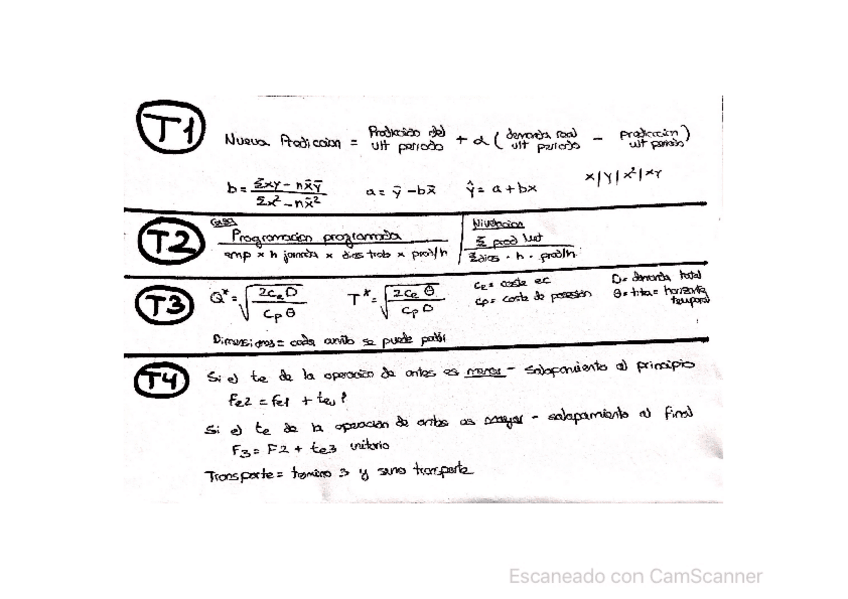 T1
Nueva Prediccion = Prediccion del ult periodo + α ( demanda real ult periodo − prediccion ult periodo )
b = Σxy − nx̄ȳ / Σx² − nx̄²   a = ȳ − bx̄   ŷ = a + bx   x | y | x² | xy
T2
Programacion programada / emp × h jornada × dias trab × prod/h
Nivelacion
Σ prod / Σdias · h · prod/h
T3
Q* = √(2ceD / cpθ)   T* = √(2ceθ / cpD)
ce = coste ec
cp = coste de posesión
D = demanda total
θ = tita = horizonte temporal
Dimensiones = cada cuanto se puede
T4
Si el te de la operacion de antes es menor - solapamiento al principio
Fe2 = Fe1 + te1
Si el te de la operacion de antes es mayor - solapamiento al final
F3 = F2 + te3 unitario
Transporte = termino 3 y sumo transporte
Escaneado con CamScanner